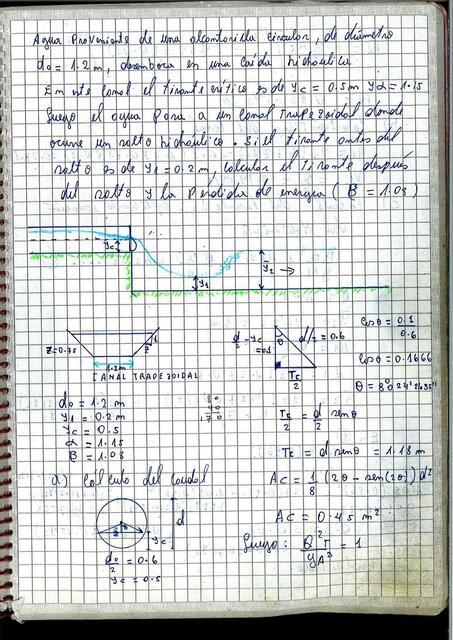 Agua Proveniente de una alcantarilla circular, de diámetro
do = 1.2 m, desemboca en una caída hidráulica
En este canal el tirante crítico es de yc = 0.5m y α = 1.15
luego el agua pasa a un canal trapezoidal donde
ocurre un salto hidráulico. Si el tirante antes del
salto es de y1 = 0.2 m, calcular el tirante después
del salto y la perdida de energia (B = 1.03)
yc
y1
y2
Z=0.75
1
Z
1.2m
CANAL TRAPEZOIDAL
d/2 - yc
=0.1
θ
d/2 = 0.6
Tc/2
cosθ = 0.1/0.6
cosθ = 0.1666
do = 1.2 m
y1 = 0.2 m
yc = 0.5
α = 1.15
B = 1.03
Tc/2 = d/2 senθ
Tc = d senθ = 1.18 m
a) Cálculo del caudal
Ac = 1/8 (2θ - sen(2θ)) d²
Ac = 0.45 m²
luego: Q²T/gA³ = 1
d
yc
do/2 = 0.6
yc = 0.5